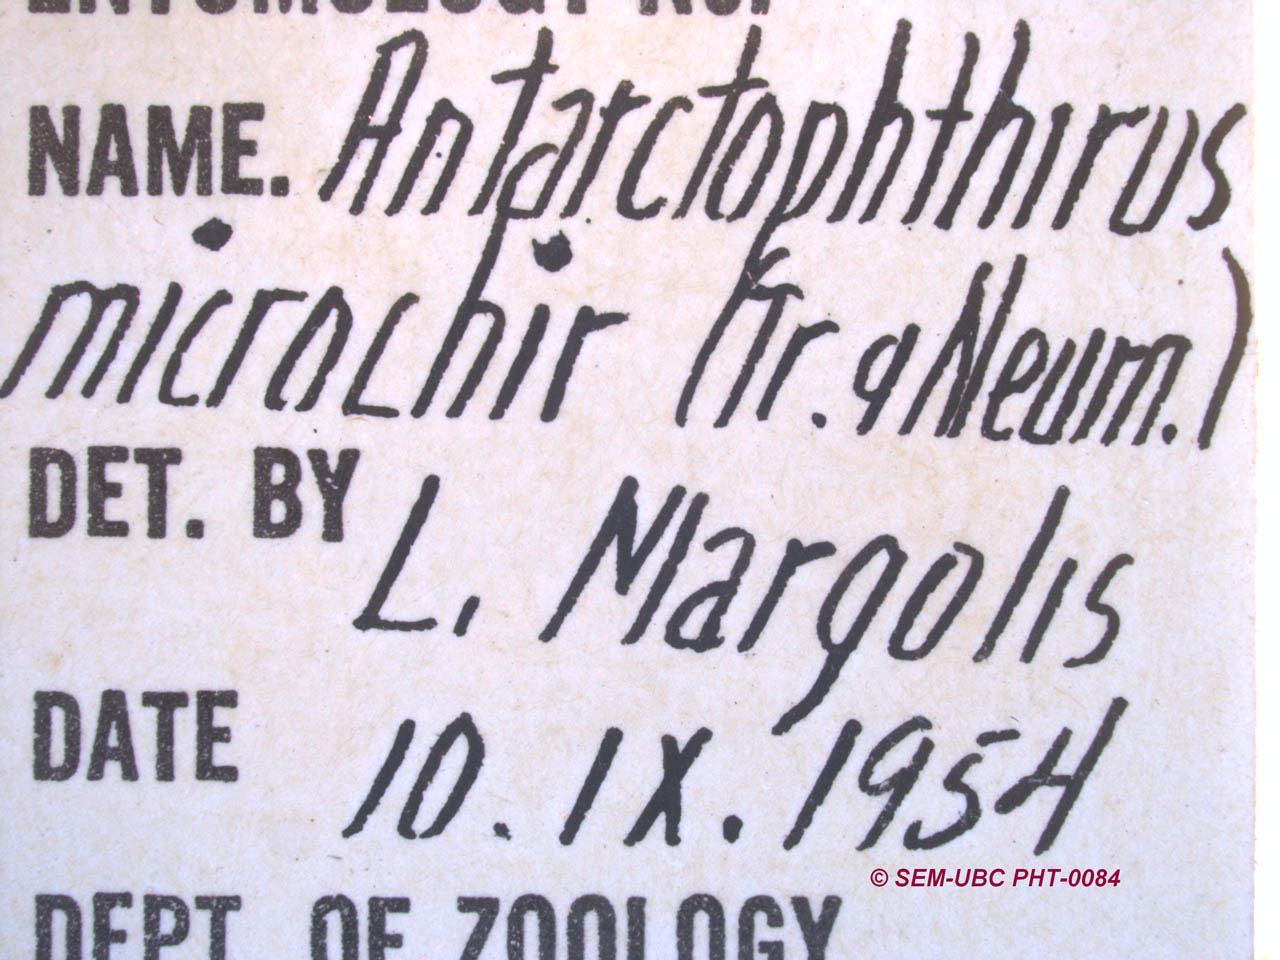 ENTOMOLOGY No.
NAME. Antarctophthirus
microchir (Tr. & Neum.)
DET. BY L. Margolis
DATE 10. IX. 1954
© SEM-UBC PHT-0084
DEPT. OF ZOOLOGY